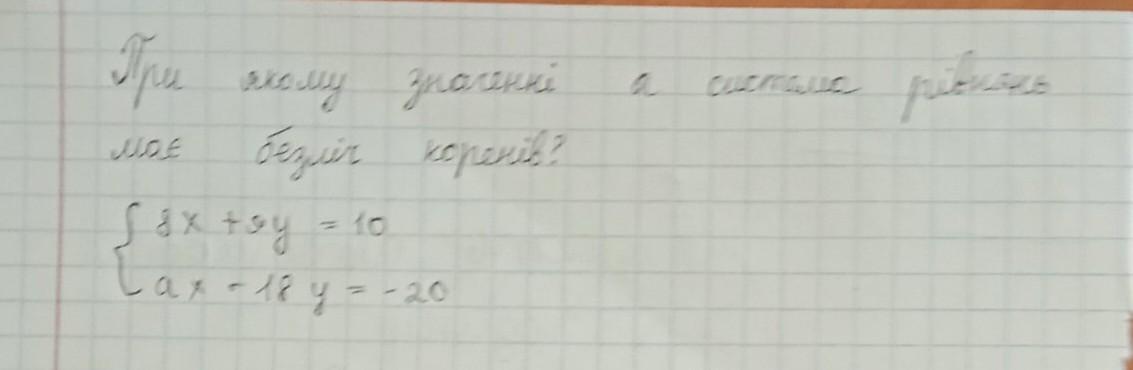 При якому значенні а система рівнянь
має безліч коренів?
{ 8x + 9y = 10
ax - 18y = -20